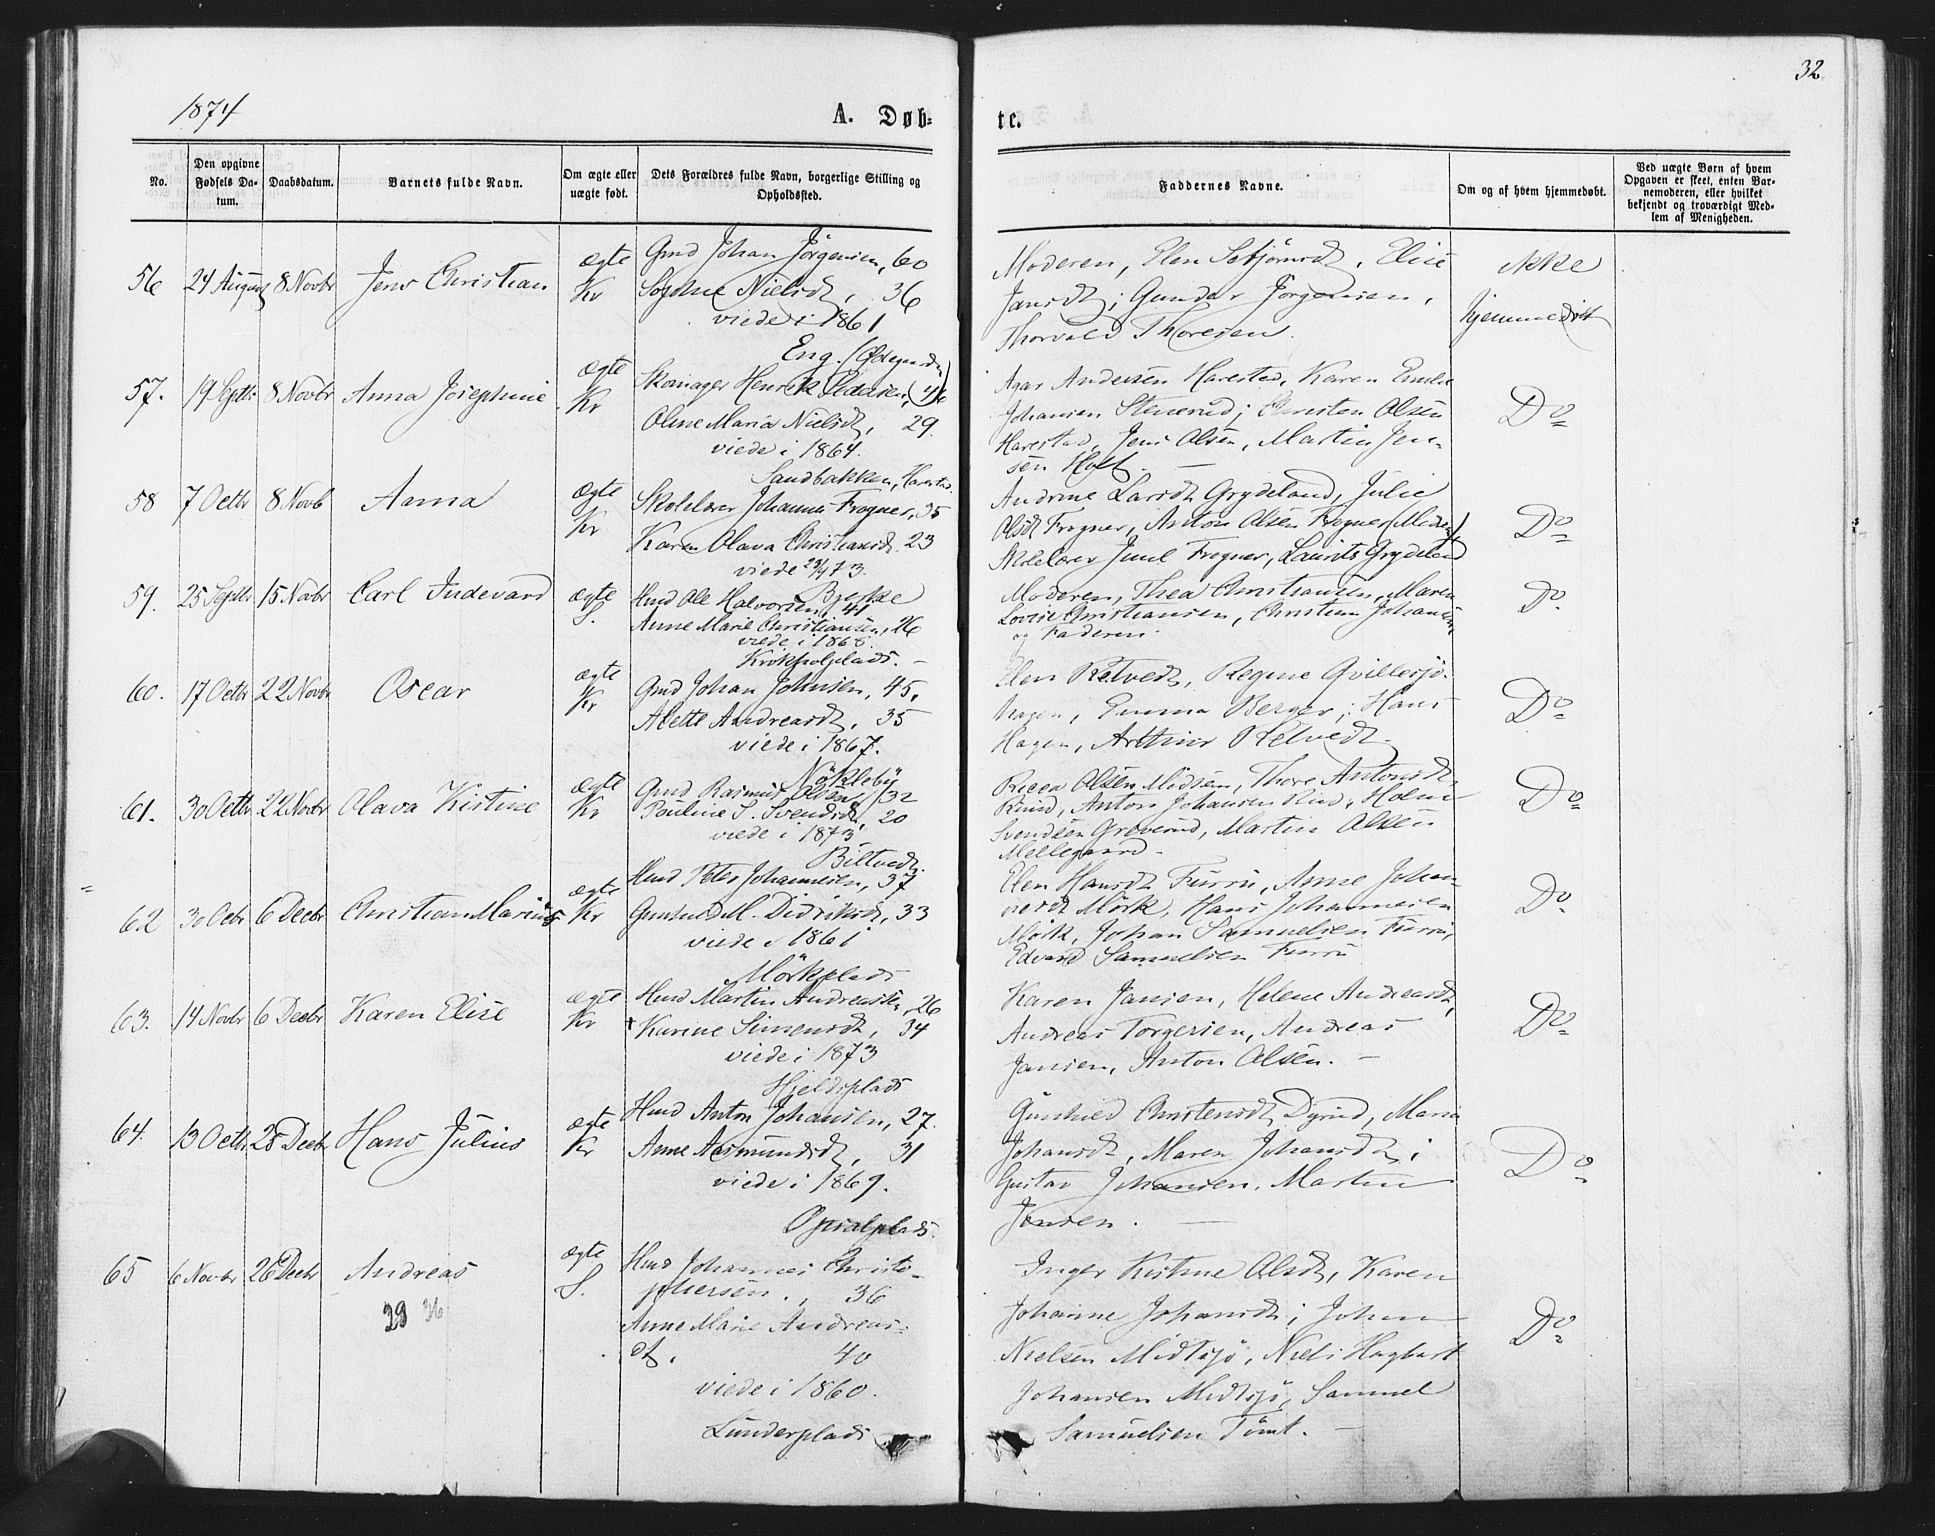 1874
32.
A. Døb-
te.
No.
Den opgivne Fødsels Da-tum.
Daabsdatum.
Barnets fulde Navn.
Om ægte eller uægte født.
Dets Forældres fulde Navn, borgerlige Stilling og Opholdssted.
Faddernes Navne.
Om og af hvem hjemmedøbt.
Ved uægte Børn af hvem Opgaven er skeet, enten Bar-nemoderen, eller hvilket bekjendt og troværdigt Med-lem af Menigheden.
56 24 August 8 Novbr Jens Christian ægte Kr
Gmd Johan Jörgensen, 60
Sophie Nielsdt, 36
viede i 1861
Eng. (Ødegaard
Moderen, Elen Sebjörnsdt, Elise
Jansdt; Gunder Jörgensen,
Thorvald Thoresen.
ikke
hjemmedöbt
57. 19 Septbr 8 Novbr Anna Josephine ægte Kr
Skomager Henrik Pedersen,
Oline Maria Nielsdt, 29.
viede i 1864.
Sandbakken, Harestad
Agar Andersen Harestad, Karen Emilie
Johansen Stenerud; Christen Olsen
Harestad, Jens Olsen, Martin Jen-
sen Holt. —
Do
58 7 Octbr 8 Novb Anna ægte Kr
Skolelærer Johannes Frogner, 35
Karen Olava Christiansdt. 23
viede 73.
Bjerke
Andrine Larsdt Grydeland, Julie
Olsdt Frogner, Anton Olsen Frogner
Skolelærer Juul Frogner, Laurits Grydeland
Do
59. 25 Septbr 15 Novbr Carl Indevard ægte S.
Husd Ole Halvorsen, 41
Anne Marie Christiansen, 26
viede i 186
Krokholplads. —
Moderen, Thea Christiansen, Maren
Lovise Christiansen, Christian Johansen,
og Faderen.
Do
60. 17 Octbr 22 Novbr Oscar ægte Kr
Gmd Johan Johnsen, 45,
Alette Andreasdt, 35
viede i 1867.
Nökleby
Elen Retvedt, Regine Qvillesjö-
hagen, Emma Berger; Hans
Hagen, Arthur Retvedt.
Do
61. 30 Octbr 22 Novbr Olava Kistine ægte Kr
Gmd Rasmus Olsen, 32
Pauline S. Svendsdt, 20
viede i 1873
Biltvedt.
Olsen Midsem, Thore Antonsdt
Ruud, Anton Johansen Rud, Holm
Svendsen Greverud, Martin Olsen
Mellegaard.
Do
62 30 Octbr 6 Decbr Christian Marius ægte Kr
Husd Peter Johannesen, 37
Gunhild M. Didriksdt, 33
viede i 1861
Mörkplads
Elen Hansdt Furru, Anne Johan-
nesdt Mörk, Hans Johannesen
Mörk, Johan Samuelsen Furru,
Edvard Samuelsen Furru
Do
63. 14 Novbr 6 Decbr Karen Elise ægte Kr
Husd Martin Andreassen, 26
Karine Simensdt, 34
viede i 1873
Hjeldsplads
Karen Jansen, Helene Andreasdt,
Andreas Torgersen, Andreas
Jansen, Anton Olsen. —
Do
64. 13 Octbr 28 Decbr Hans Julius ægte Kr
Husd Anton Johansen, 27.
Anne Aasmundsdt, 31
viede i 1869.
Opsalplads.
Gunhild Christensdt Dyrud, Maria
Johansdt, Maren Johansdt;
Gustav Johansen, Martin
Jensen. —
Do
65 6 Novbr 26 Decbr Andreas ægte S.
Husd Johannes Christo-
phersen, 36
Anne Marie Andreas-
dt. 40
viede i 1860.
Lunderplads
Inger Kistine Olsdt, Karen
Johanne Johansdt; Johan
Nielsen Midtsjö, Niels Hagbart
Johansen Midtsjö, Samuel
Samuelsen Tömt. —
Do
39 36